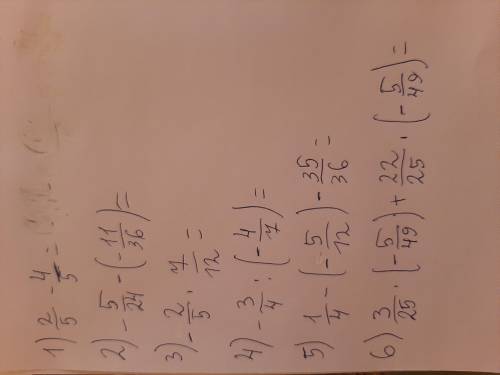 1) 2/5 - 4/5 =
2) - 5/24 - (- 11/36) =
3) - 2/5 · 7/12 =
4) - 3/4 : (- 4/7) =
5) 1/4 - (- 5/12) - 35/36 =
6) 3/25 · (- 5/49) + 22/25 · (- 5/49) =